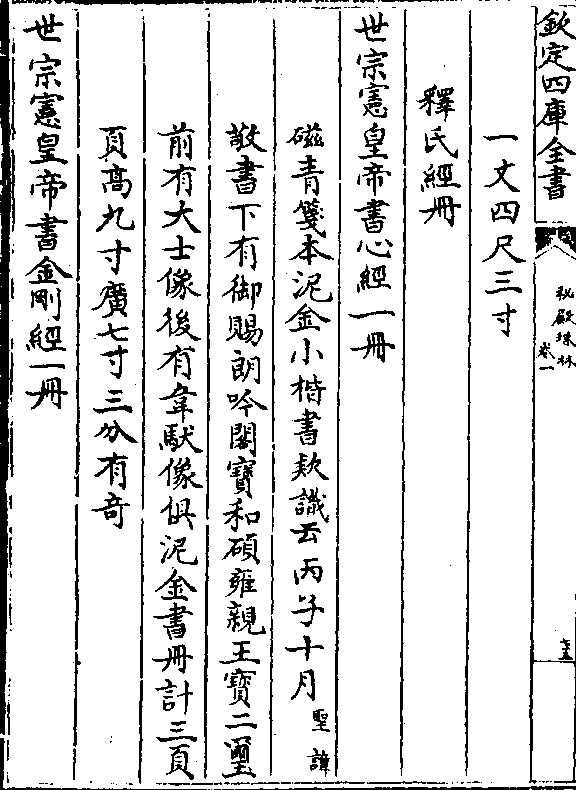 欽定四庫全書
秘殿珠林
卷一
一丈四尺三寸
釋氏經冊
世宗憲皇帝書心經一冊
磁青箋本泥金小楷書欵識云丙子十月聖諱
敬書下有御賜朗吟閣寶和碩雍親王寶二璽
前有大士像後有韋馱像俱泥金書冊計三頁
頁高九寸廣七寸三分有奇
世宗憲皇帝書金剛經一冊